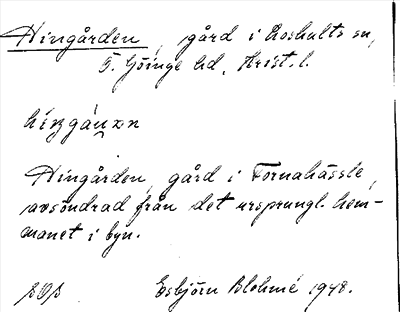 Hingården, gård i Loshults sn,
Ö. Göinge hd, Krist. l.
Hingården, gård i Tornahässle,
avsöndrad från det ursprungl. hem-
manet i byn.
Esbjörn Blohmé 1948.